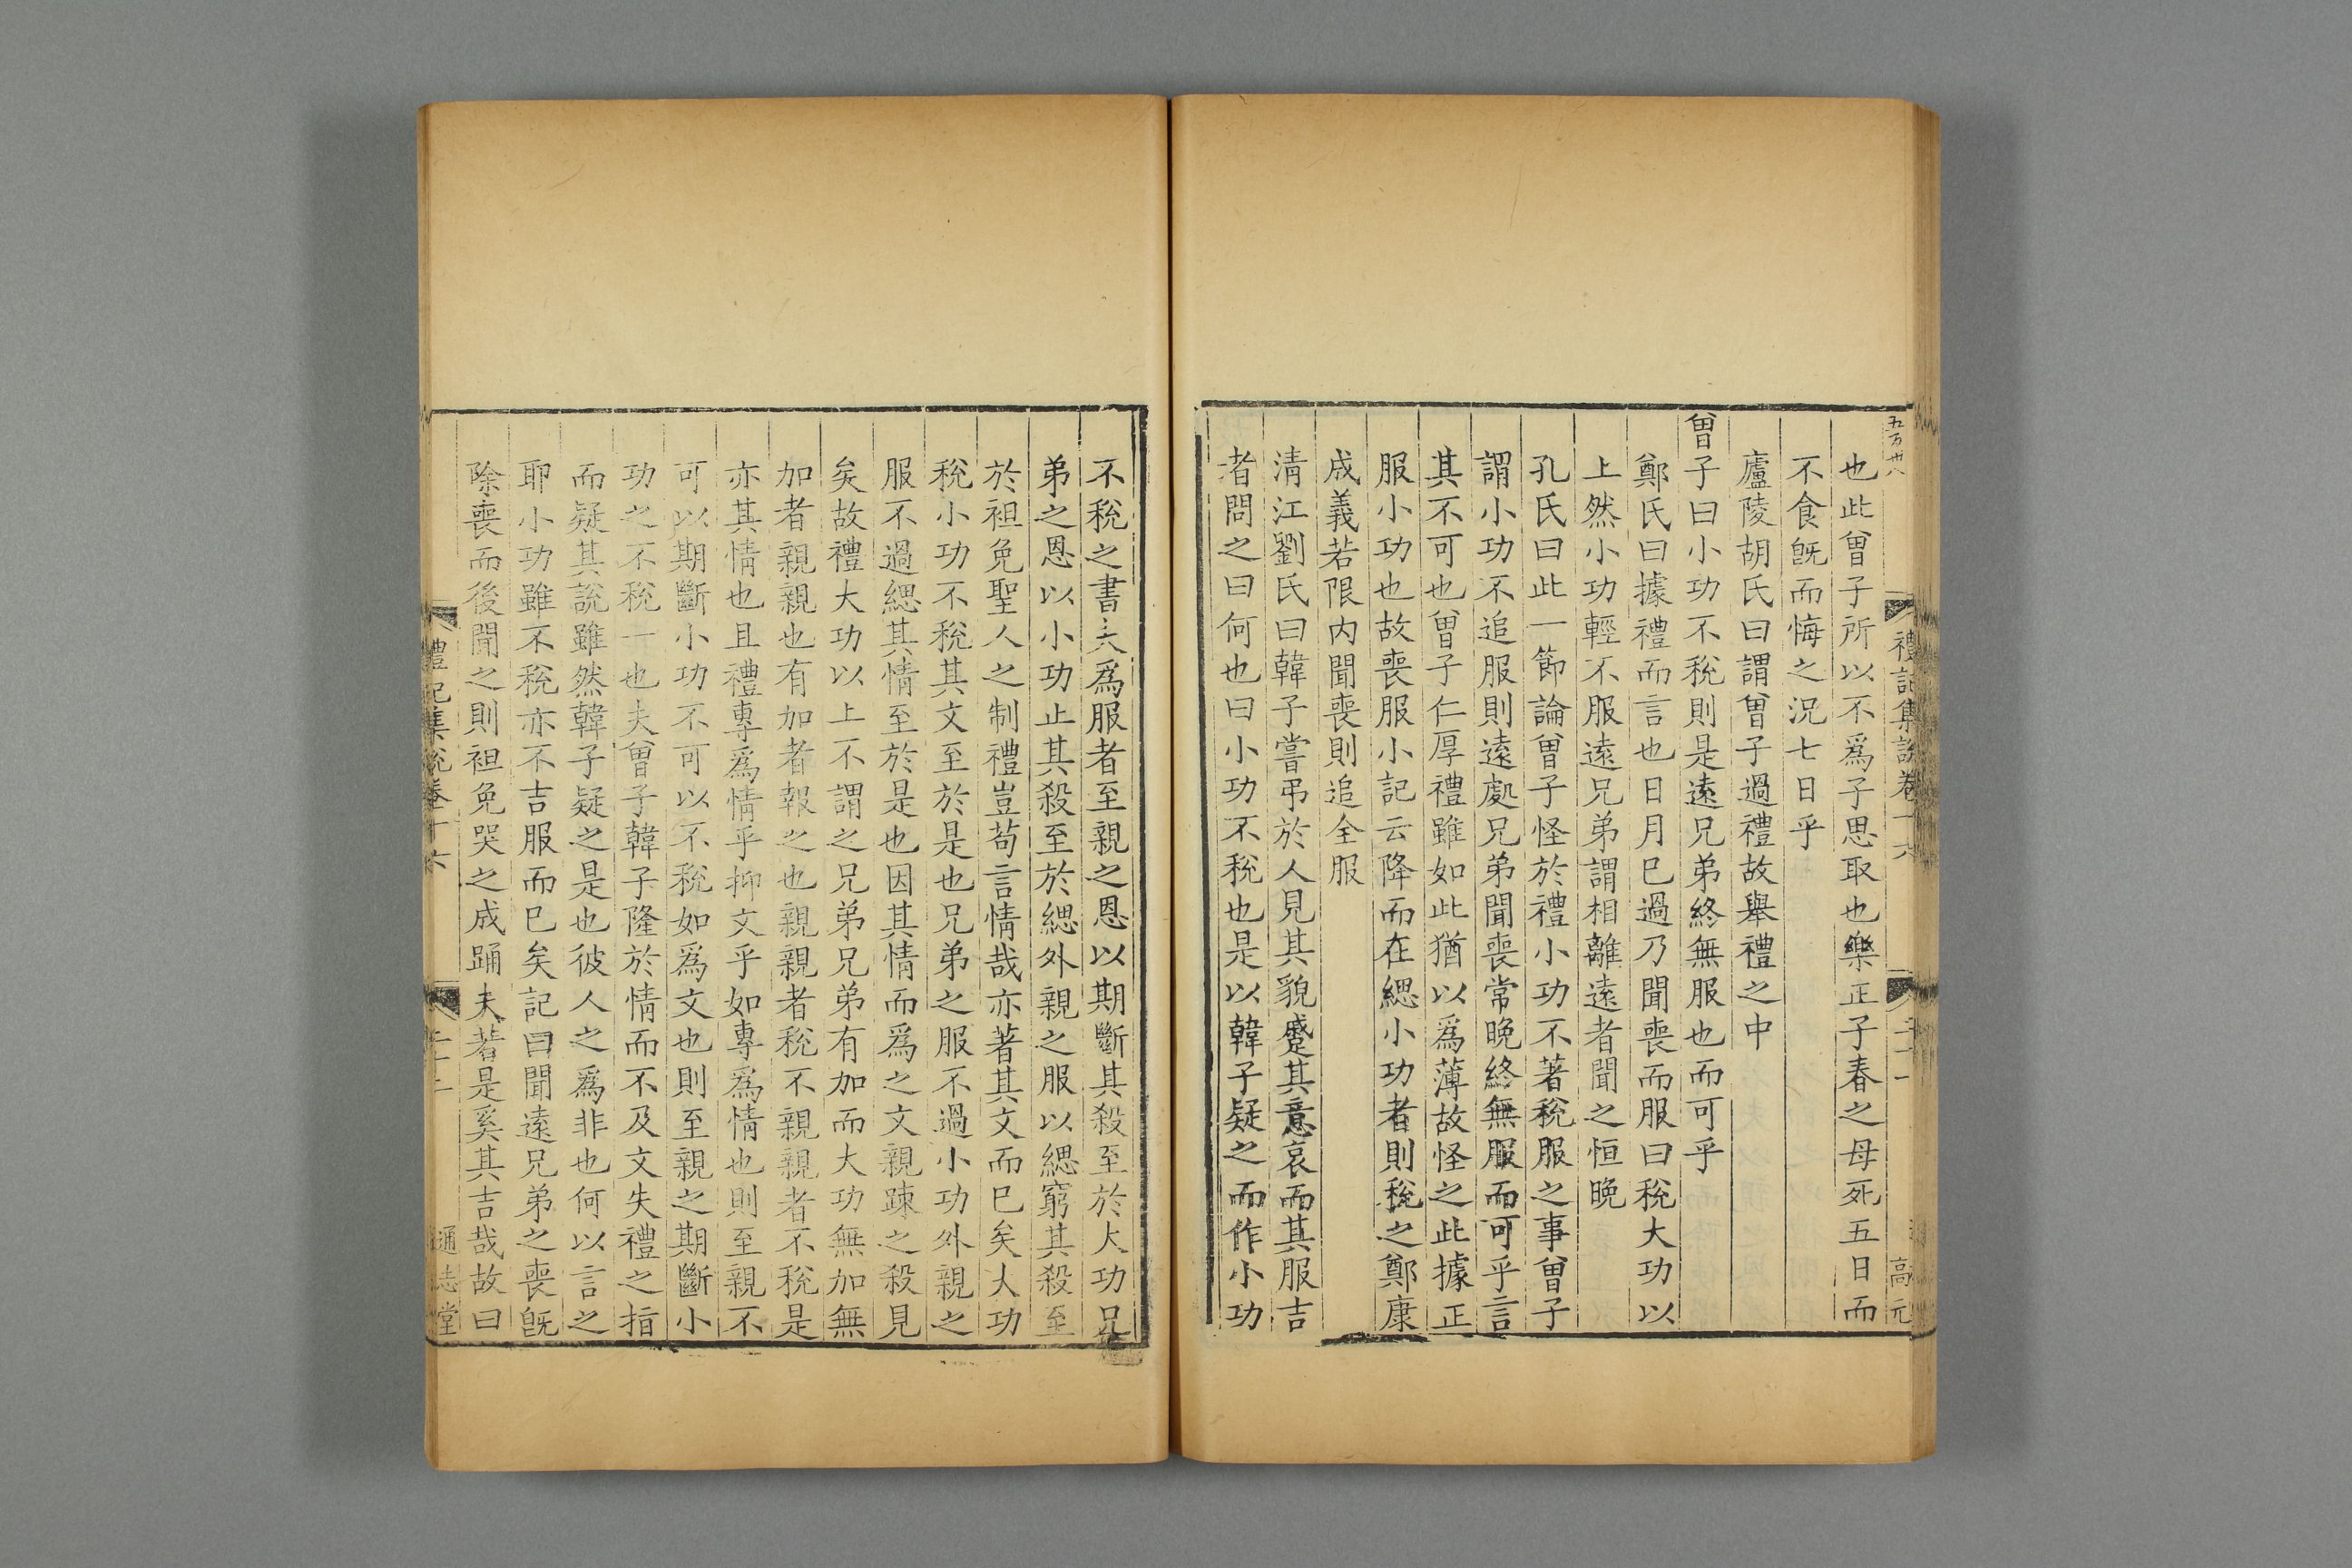 五万卅八
禮記集說卷十六
二十一
高元
也此曾子所以不爲子思取也樂正子春之母死五日而
不食旣而悔之況七日乎
廬陵胡氏曰謂曾子過禮故舉禮之中
曾子曰小功不稅則是遠兄弟終無服也而可乎
鄭氏曰據禮而言也日月已過乃聞喪而服曰稅大功以
上然小功輕不服遠兄弟謂相離遠者聞之恒晚
孔氏曰此一節論曾子怪於禮小功不著稅服之事曾子
謂小功不追服則遠處兄弟聞喪常晚終無服而可乎言
其不可也曾子仁厚禮雖如此猶以爲薄故怪之此據正
服小功也故喪服小記云降而在緦小功者則稅之鄭康
成義若限內聞喪則追全服
清江劉氏曰韓子嘗弔於人見其貌慼其意哀而其服吉
者問之曰何也曰小功不稅也是以韓子疑之而作小功
不稅之書夫爲服者至親之恩以期斷其殺至於大功兄
弟之恩以小功止其殺至於緦外親之服以緦窮其殺至
於袒免聖人之制禮豈苟言情哉亦著其文而已矣大功
稅小功不稅其文至於是也兄弟之服不過小功外親之
服不過緦其情至於是也因其情而爲之文親踈之殺見
矣故禮大功以上不謂之兄弟兄弟有加而大功無加無
加者親親也有加者報之也親親者稅不親親者不稅是
亦其情也且禮專爲情乎抑文乎如專爲情也則至親不
可以期斷小功不可以不稅如爲文也則至親之期斷小
功之不稅一也夫曾子韓子隆於情而不及文失禮之指
而疑其說雖然韓子疑之是也彼人之爲非也何以言之
耶小功雖不稅亦不吉服而已矣記曰聞遠兄弟之喪旣
除喪而後聞之則袒免哭之成踊夫若是奚其吉哉故曰
禮記集說卷十六
二十二
通志堂